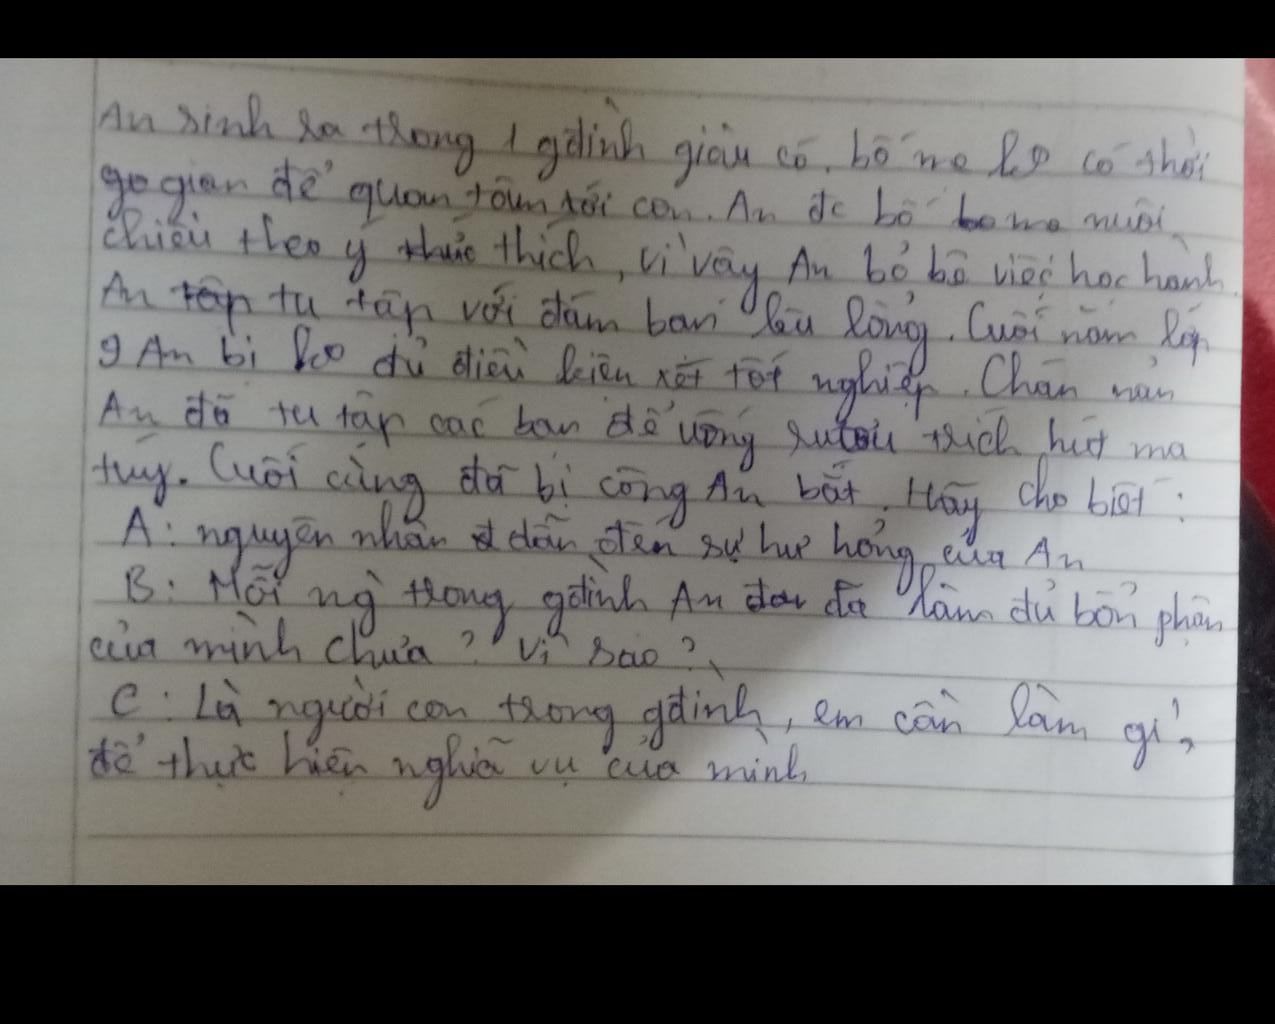 An sinh ra trong 1 gđình giàu có. bố mẹ ko có thời
gian để quan tâm tới con. An đc bố mẹ nuôi
chiều theo ý thích, vì vậy An bỏ bê việc học hành.
An tụ tập với đám bạn lêu lổng. Cuối năm lớp
9 An bị ko đủ điều kiện xét tốt nghiệp. Chán nản
An đã tụ tập các bạn để uống rượu trích hút ma
túy. Cuối cùng đã bị công An bắt. Hãy cho biết:
A: nguyên nhân dẫn đến sự hư hỏng của An
B: Mỗi ng trong gđình An đã làm đủ bổn phận
của mình chưa? Vì sao?
C: Là người con trong gđình, em cần làm gì
để thực hiện nghĩa vụ của mình